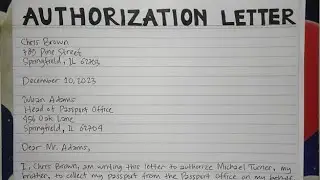 AUTHORIZATION LETTER
Chris Brown
789 Pine Street
Springfield, IL 62703
December 10, 2023
Adams
Head of Passport Office
456 Oak Lane
Springfield, IL 62704
Dear Mr. Adams,
I, Chris Brown, am writing this letter to authorize Michael Turner, my
brother, to collect my passport from the Passport Office on my behalf